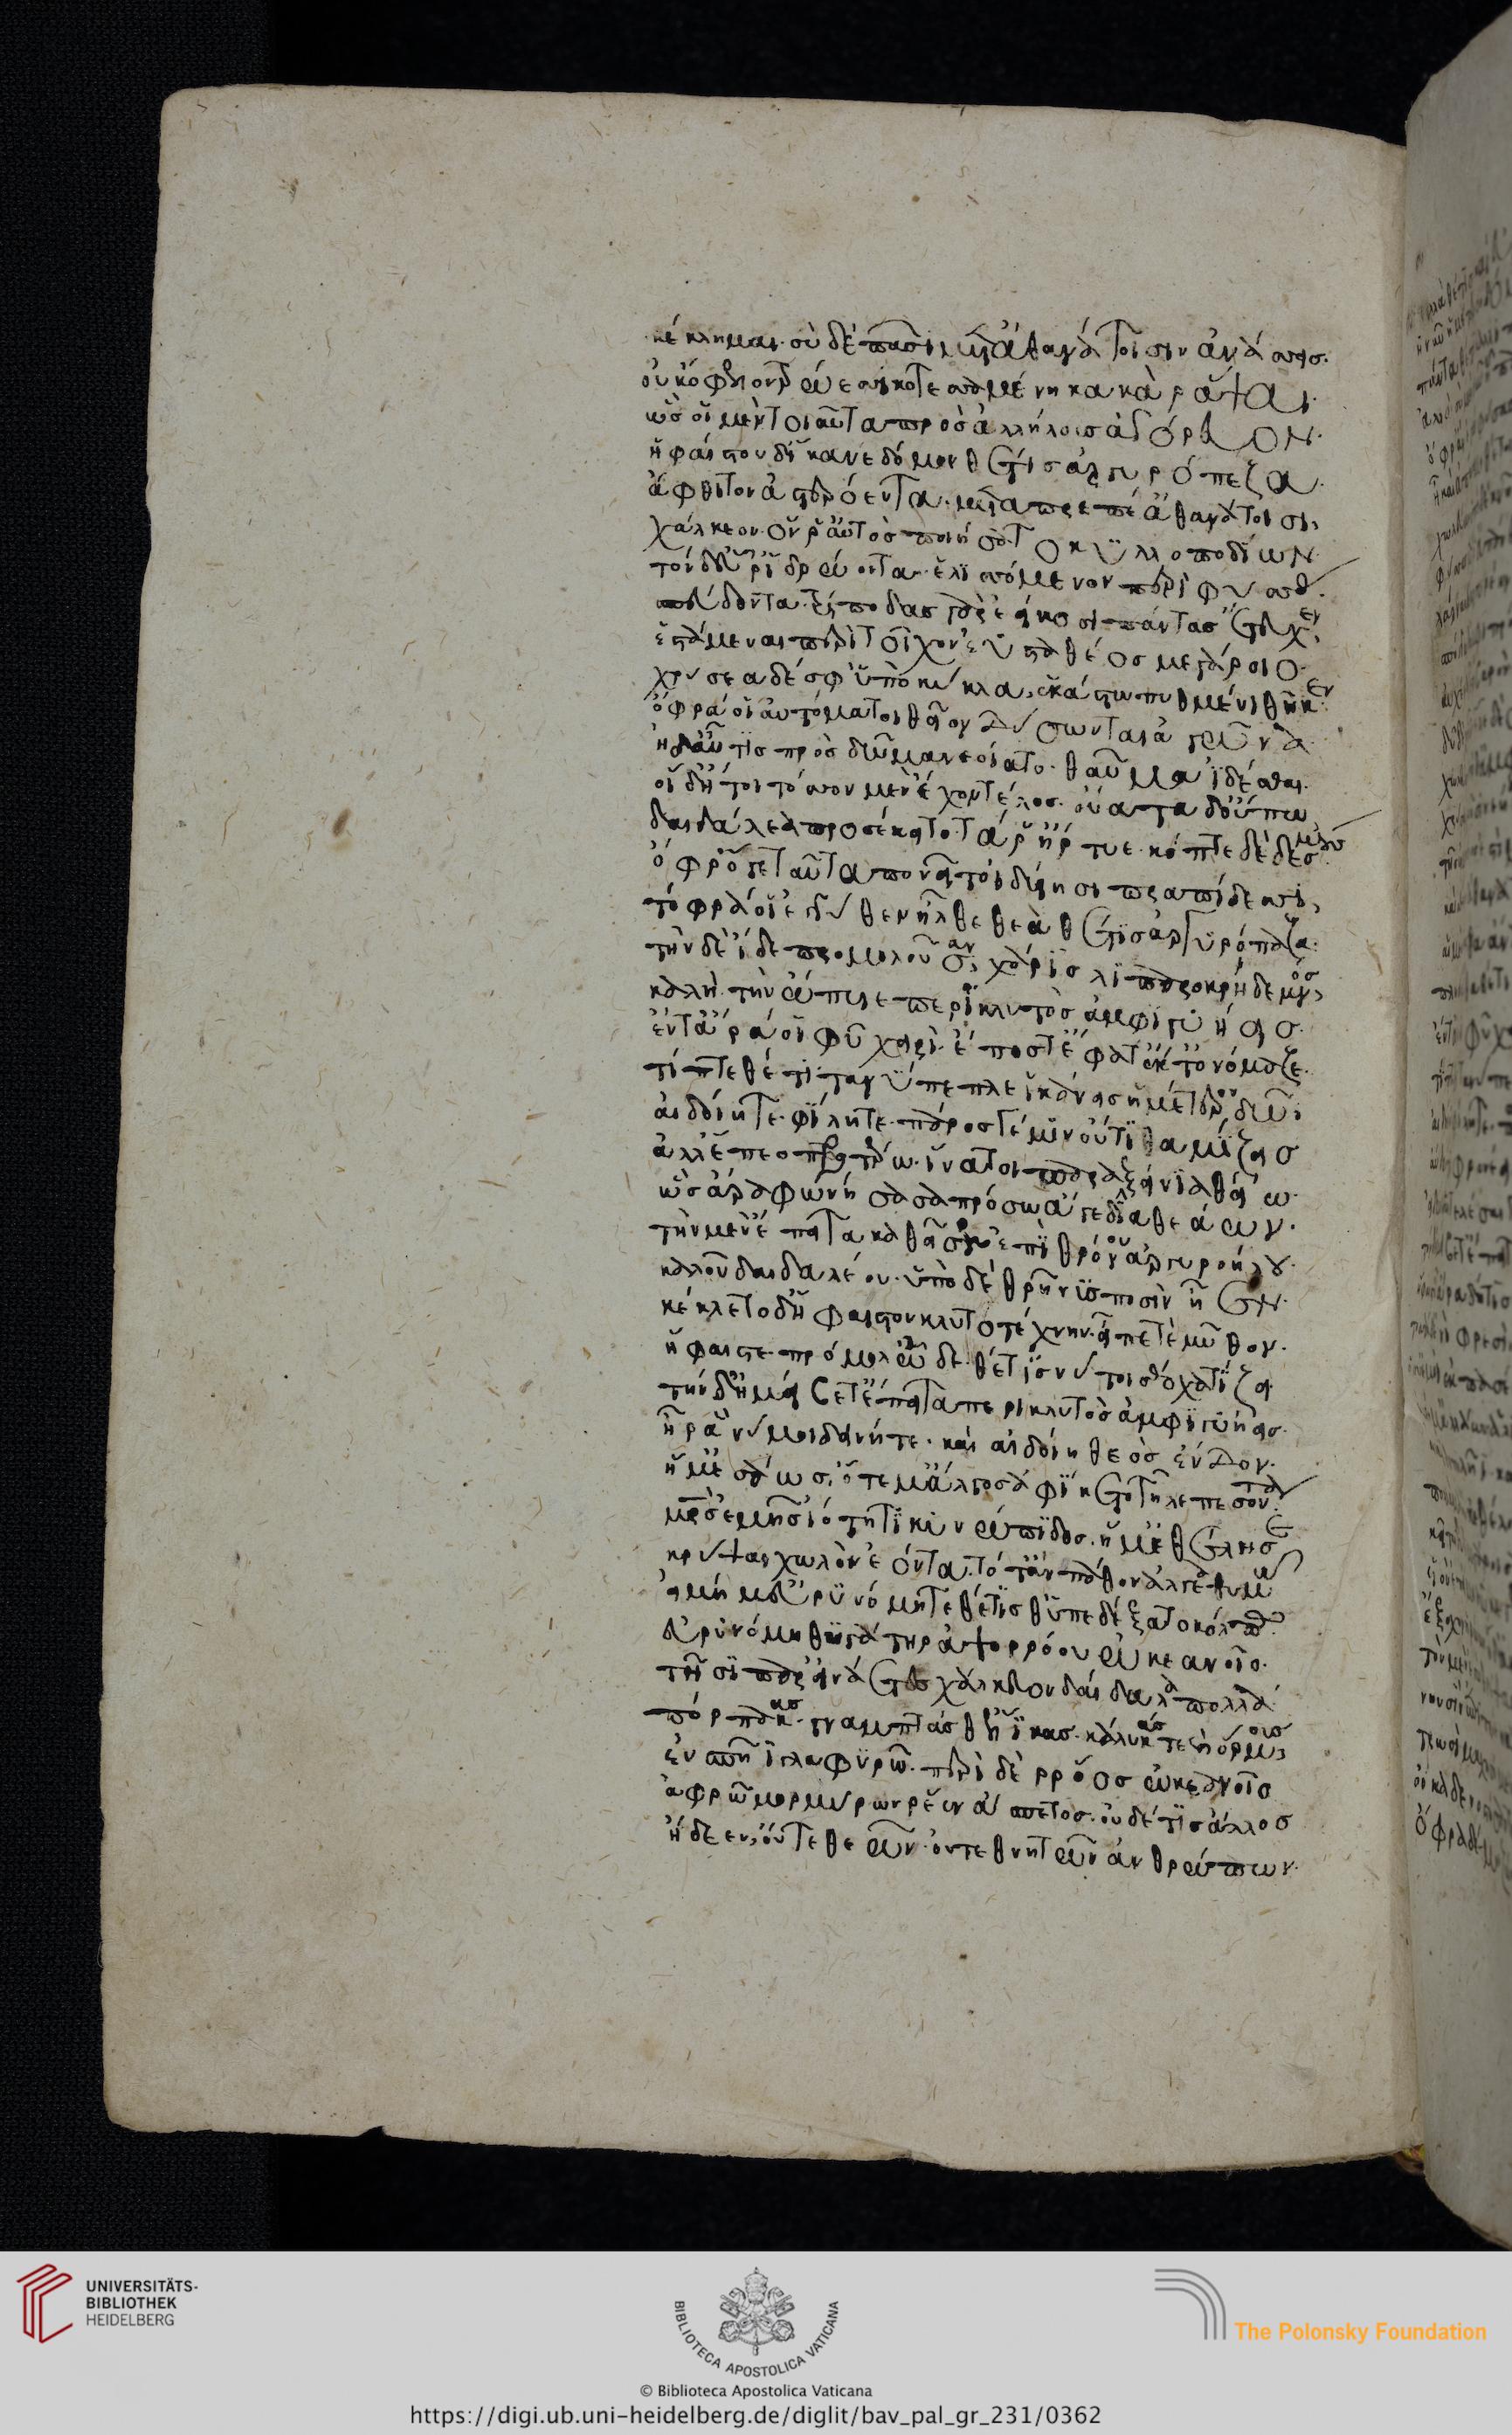 κέκλημαι· σὺ δὲ πᾶσι μετ' ἀθανάτοισιν ἀνάσσεις·
οὐκ ὄφελον τρώεσσι κοτεσσαμένη κακὰ ῥάψαι·
ὣς οἳ μὲν τοιαῦτα πρὸς ἀλλήλους ἀγόρευον·
ἡφαίστου δ' ἵκανε δόμον θέτις ἀργυρόπεζα·
ἄφθιτον ἀστερόεντα· μεταπρεπέ' ἀθανάτοισι,
χάλκεον· ὅν ῥ' αὐτὸς ποιήσατο κυλλοποδίων·
τὸν δ' εὗρ' ἱδρώοντα· ἑλισσόμενον περὶ φύσας·
σπεύδοντα· τρίποδας γὰρ ἐείκοσι πάντας ἔτευχεν,
ἑστάμεναι περὶ τοῖχον ἐϋσταθέος μεγάροιο·
χρύσεα δέ σφ' ὑπὸ κύκλα, ἑκάστω πυθμένι θῆκεν·
ὄφρά οἱ αὐτόματοι θεῖον δύσωνται ἀγῶνα·
ἠδ' αὖτις πρὸς δῶμα νεοίατο· θαῦμα ἰδέσθαι·
οἳ δ' ἤτοι τόσσον μὲν ἔχον τέλος· οὔατα δ' οὔπω
δαιδάλεα προσέκειτο· τά ῥ' ἤρτυε· κόπτε δὲ δεσμούς·
ὄφρ' ὅ γε ταῦτα πονεῖτο ἰδυίησι πραπίδεσσι,
τόφρά οἱ ἐγγύθεν ἦλθε θεὰ θέτις ἀργυρόπεζα·
τὴν δὲ ἴδε προμολοῦσαν, χάρις λιπαροκρήδεμνος,
καλὴ· τὴν ὤπυιε περικλυτὸς ἀμφιγυήεις·
ἔν τ' ἄρά οἱ φῦ χειρὶ· ἔπος τ' ἔφατ' ἔκ τ' ὀνόμαζε·
τίπτε θέτι τανύπεπλε ἱκάνεις ἡμέτερον δῶ·
αἰδοίη τε· φίλη τε· πάρος γέ μιν οὔτι θαμίζεις
ἀλλ' ἕπεο προτέρω· ἵνα τοι παρξείνια θείω·
ὣς ἄρα φωνήσασα πρόσω ἄγε δῖα θεάων·
τὴν μὲν ἔπειτα καθεῖσεν ἐπὶ θρόνου ἀργυροήλου·
καλοῦ δαιδαλέου· ὑπὸ δὲ θρῆνυς ποσὶν ἦεν·
κέκλετο δ' ἥφαιστον κλυτοτέχνην· εἶπέ τε μῦθον·
ἥφαιστε· πρόμολ' ὧδε· θέτις νύ τοι σεῖο χατίζει·
τὴν δ' ἠμείβετ' ἔπειτα περικλυτὸς ἀμφιγυήεις·
ἦ ῥά νύ μοι δεινή τε· καὶ αἰδοίη θεὸς ἔνδον·
ἥ μ' ἐσάωσ', ὅτε μ' ἄλγος ἀφίκετο τῆλε πεσόντα·
μητρὸς ἐμῆς ἰότητι κυνώπιδος· ἥ μ' ἐθέλησε
κρύψαι χωλὸν ἐόντα· τότ' ἂν πάθον ἄλγεα θυμῶ
εἰ μή μ' εὐρυνόμη τε θέτις θ' ὑπεδέξατο κόλπω·
εὐρυνόμη θυγάτηρ ἀψορρόου ὠκεανοῖο·
τῆσι παρ' εἰνάετες χάλκευον δαίδαλα πολλὰ·
πόρπας τε γναμπτάς θ' ἕλικας· κάλυκάς τε καὶ ὅρμους,
ἐν σπῆϊ γλαφυρῶ· περὶ δὲ ῥόος ὠκεανοῖο
ἀφρῶ μορμύρων ῥέεν ἄσπετος· οὐδέ τις ἄλλος
ἤδεεν, οὔτε θεῶν· οὔτε θνητῶν ἀνθρώπων·
UNIVERSITÄTS-
BIBLIOTHEK
HEIDELBERG
BIBLIOTECA APOSTOLICA VATICANA
The Polonsky Foundation
© Biblioteca Apostolica Vaticana
https://digi.ub.uni-heidelberg.de/diglit/bav_pal_gr_231/0362